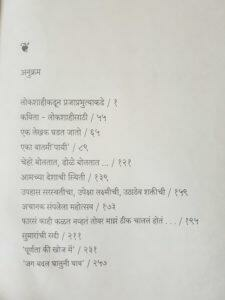 अनुक्रम
लोकशाहीकडून प्रजाप्रभुत्वाकडे / १
कविता - लोकशाहीसाठी / ५५
एक लेखक घडत जातो / ६५
एका बातमी'पायी' / ८९
चेहरे बोलतात, डोळे बोलतात ... / १२१
आमच्या देशाची स्थिती / १३९
उपहास सरस्वतीचा, उपेक्षा लक्ष्मीची, उठाठेव शक्तीची / १५९
अचानक संपलेला महोत्सव / १७३
फारसं काही कळत नव्हतं तोवर माझं ठीक चाललं होतं . . . / १९५
सुमारांची सद्दी / २११
'पूर्णता की खोज में' / २३१
'जग बदल घालुनी घाव' / २५७